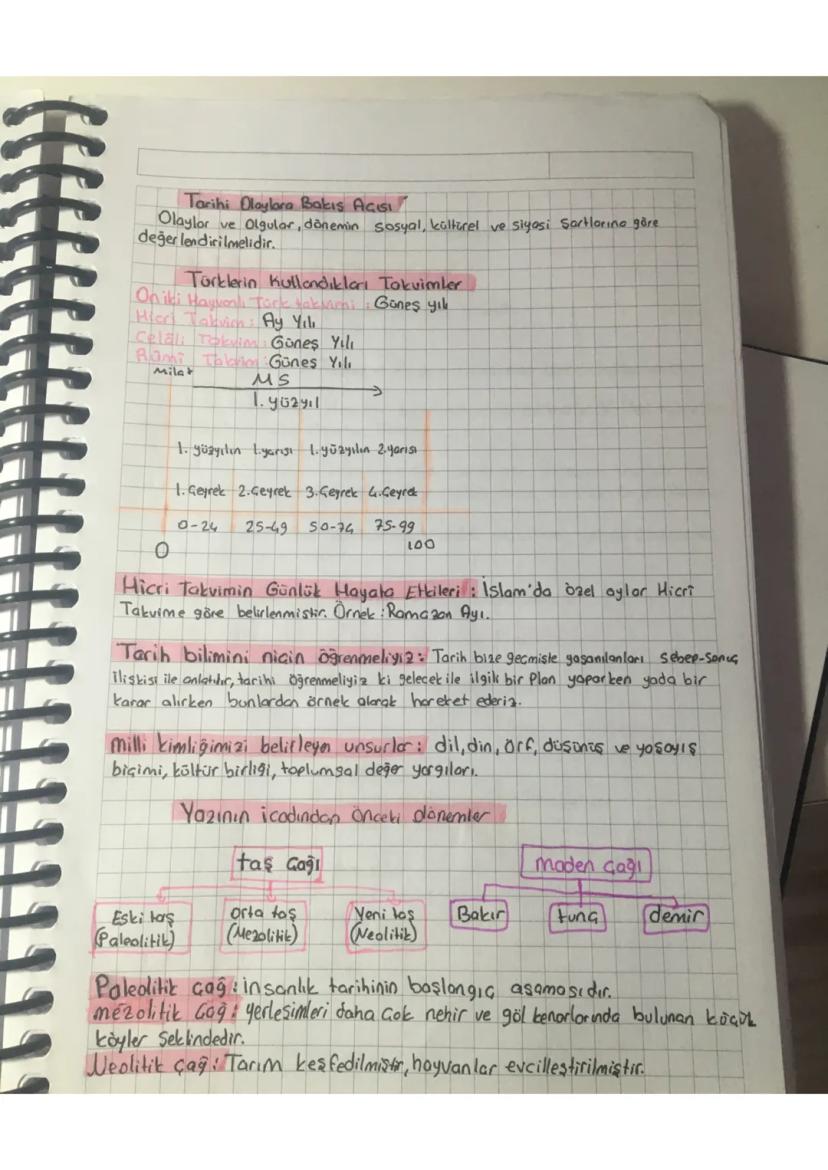 Tarihi Olaylara Bakış Açısı
Olaylar ve Olgular, dönemin sosyal, kültürel ve siyasi şartlarına göre
değerlendirilmelidir.
Türklerin Kullandıkları Takvimler
On iki Hayvanlı Türk takvimi : Güneş yılı
Hicri Takvim : Ay Yılı
Celâli Takvim : Güneş Yılı
Rûmî Takvim : Güneş Yılı
Milat
MS
1. yüzyıl
1. yüzyılın 1.yarısı 1. yüzyılın 2.yarısı
1. Çeyrek 2.Çeyrek 3.Çeyrek 4.Çeyrek
0-24 25-49 50-74 75-99
0 100
Hicri Takvimin Günlük Hayata Etkileri : İslam'da özel aylar Hicri
Takvime göre belirlenmiştir. Örnek : Ramazan Ayı.
Tarih bilimini niçin öğrenmeliyiz : Tarih bize geçmişte yaşanılanları sebep-sonuç
ilişkisi ile anlatılır, tarihi öğrenmeliyiz ki gelecek ile ilgili bir plan yaparken yada bir
karar alırken bunlardan örnek alarak hareket ederiz.
milli kimliğimizi belirleyen unsurlar : dil, din, örf, düşünüş ve yaşayış
biçimi, kültür birliği, toplumsal değer yargıları.
Yazının icadından önceki dönemler
taş çağı maden çağı
Eski taş (Paleolitik) Orta taş (Mezolitik) Yeni taş (Neolitik) Bakır tunç demir
Paleolitik çağ : insanlık tarihinin başlangıç aşamasıdır.
mezolitik Çağ : yerleşimleri daha çok nehir ve göl kenarlarında bulunan küçük
köyler şeklindedir.
Neolitik çağ : Tarım keşfedilmiştir, hayvanlar evcilleştirilmiştir.